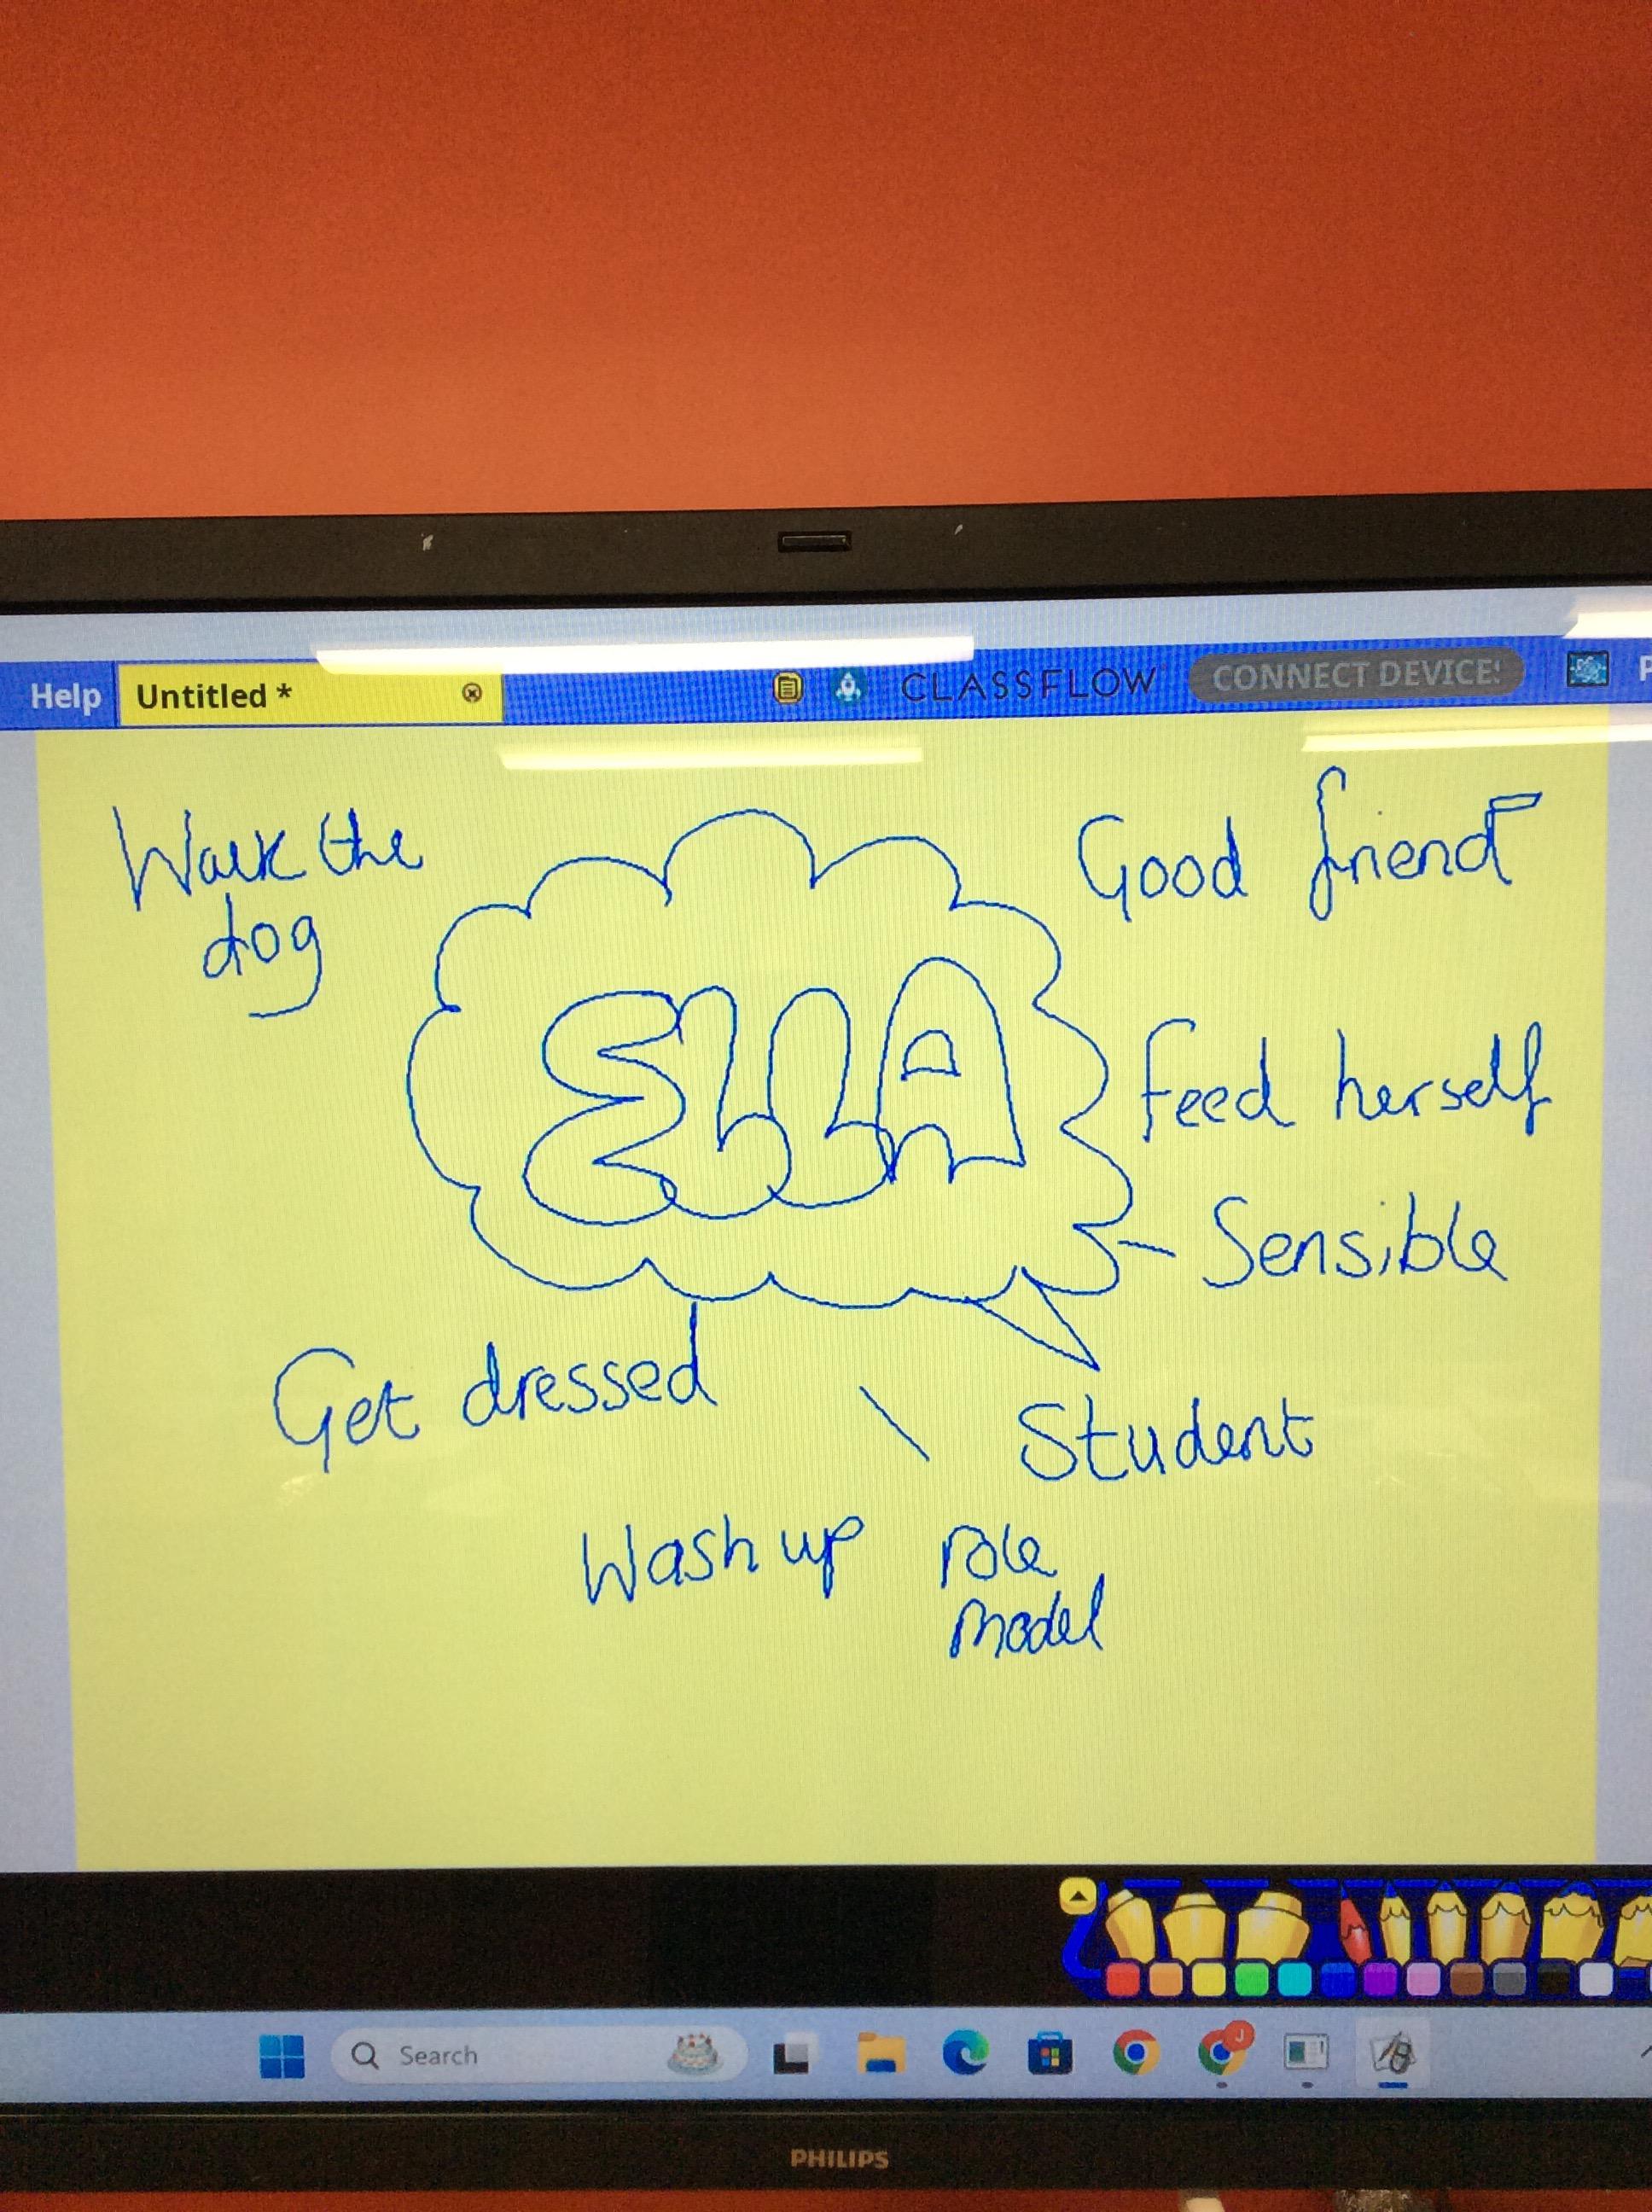 Help
Untitled *
CLASSFLOW
CONNECT DEVICE!
P
Walk the
dog
Good friend
ELLA
Feed herself
Sensible
Get dressed
Student
Wash up
role
model
Search
J
PHILIPS